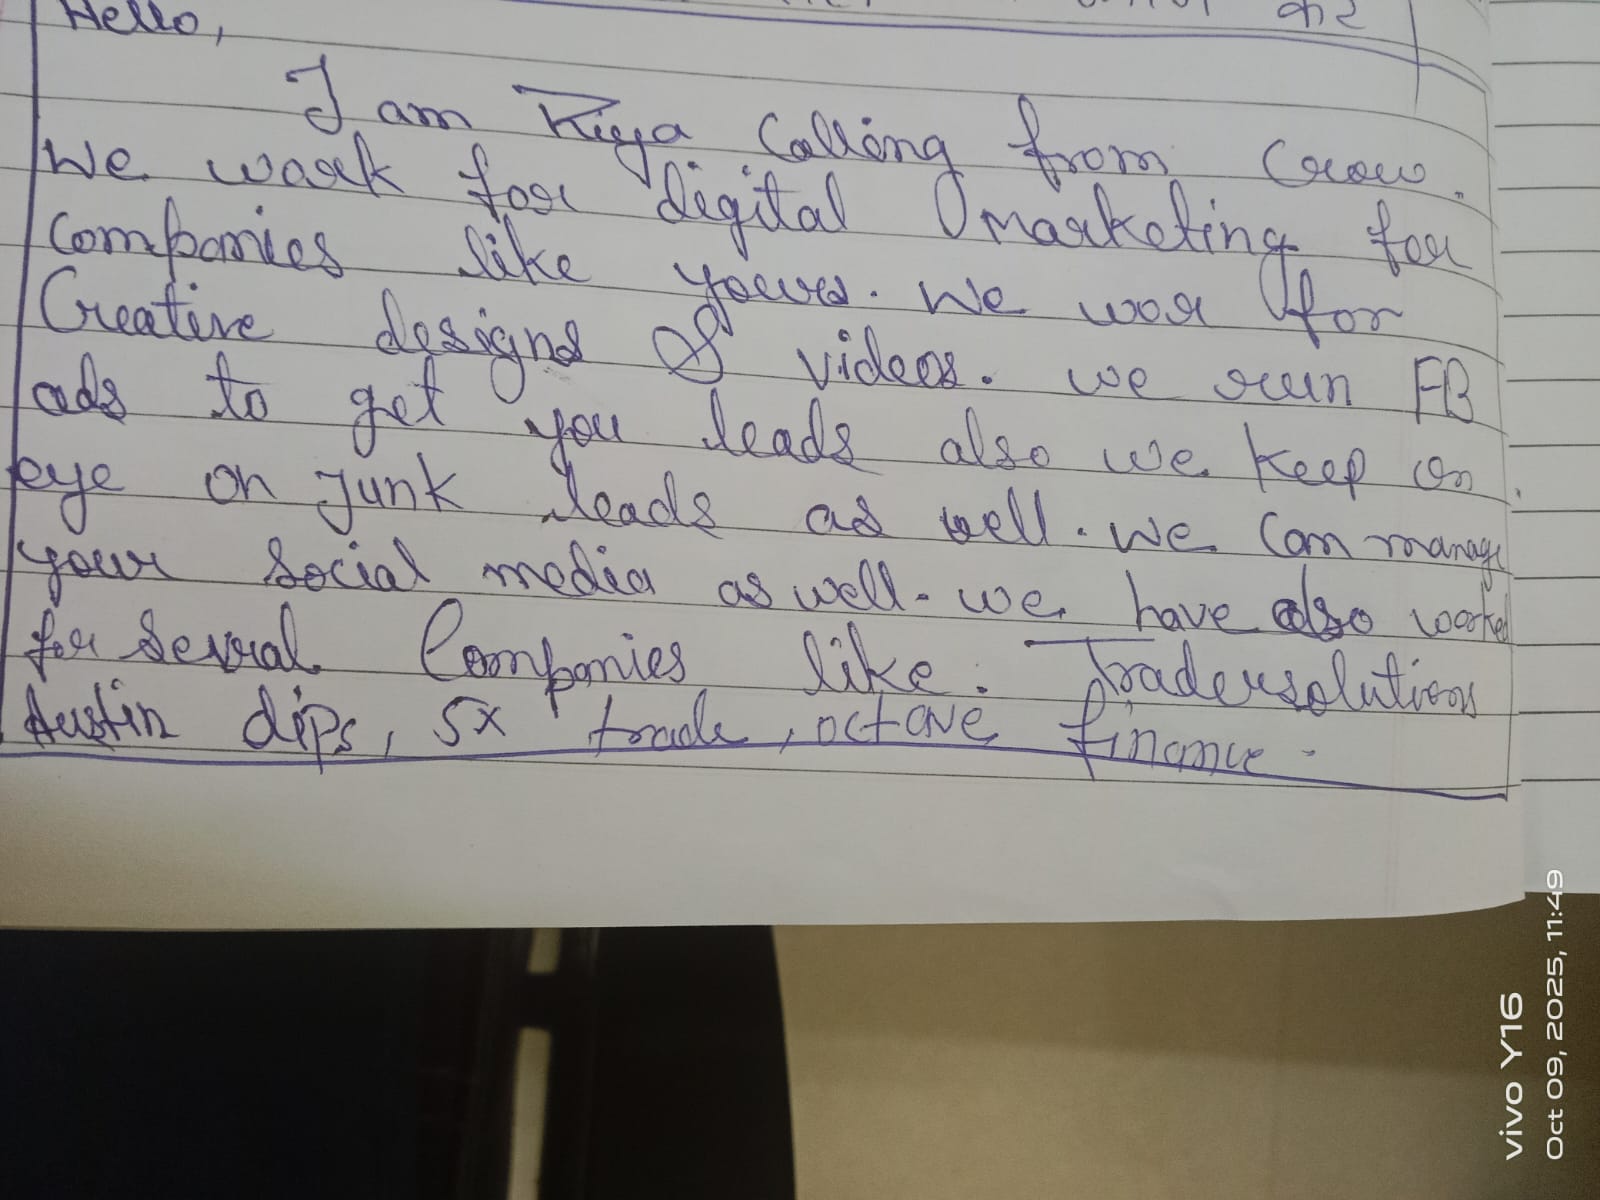 Hello,
I am Riya Calling from Crow.
We work for digital marketing for
Companies like yours. We wor for
Creative designs & videos. we run FB
ads to get you leads also we keep on
eye on junk leads as well. we can manage
your social media as well. we have also worked
for several Companies like. Tradersolutions
Austin dips, 5x trade, octave finance.
vivo Y16
Oct 09, 2025, 11:49